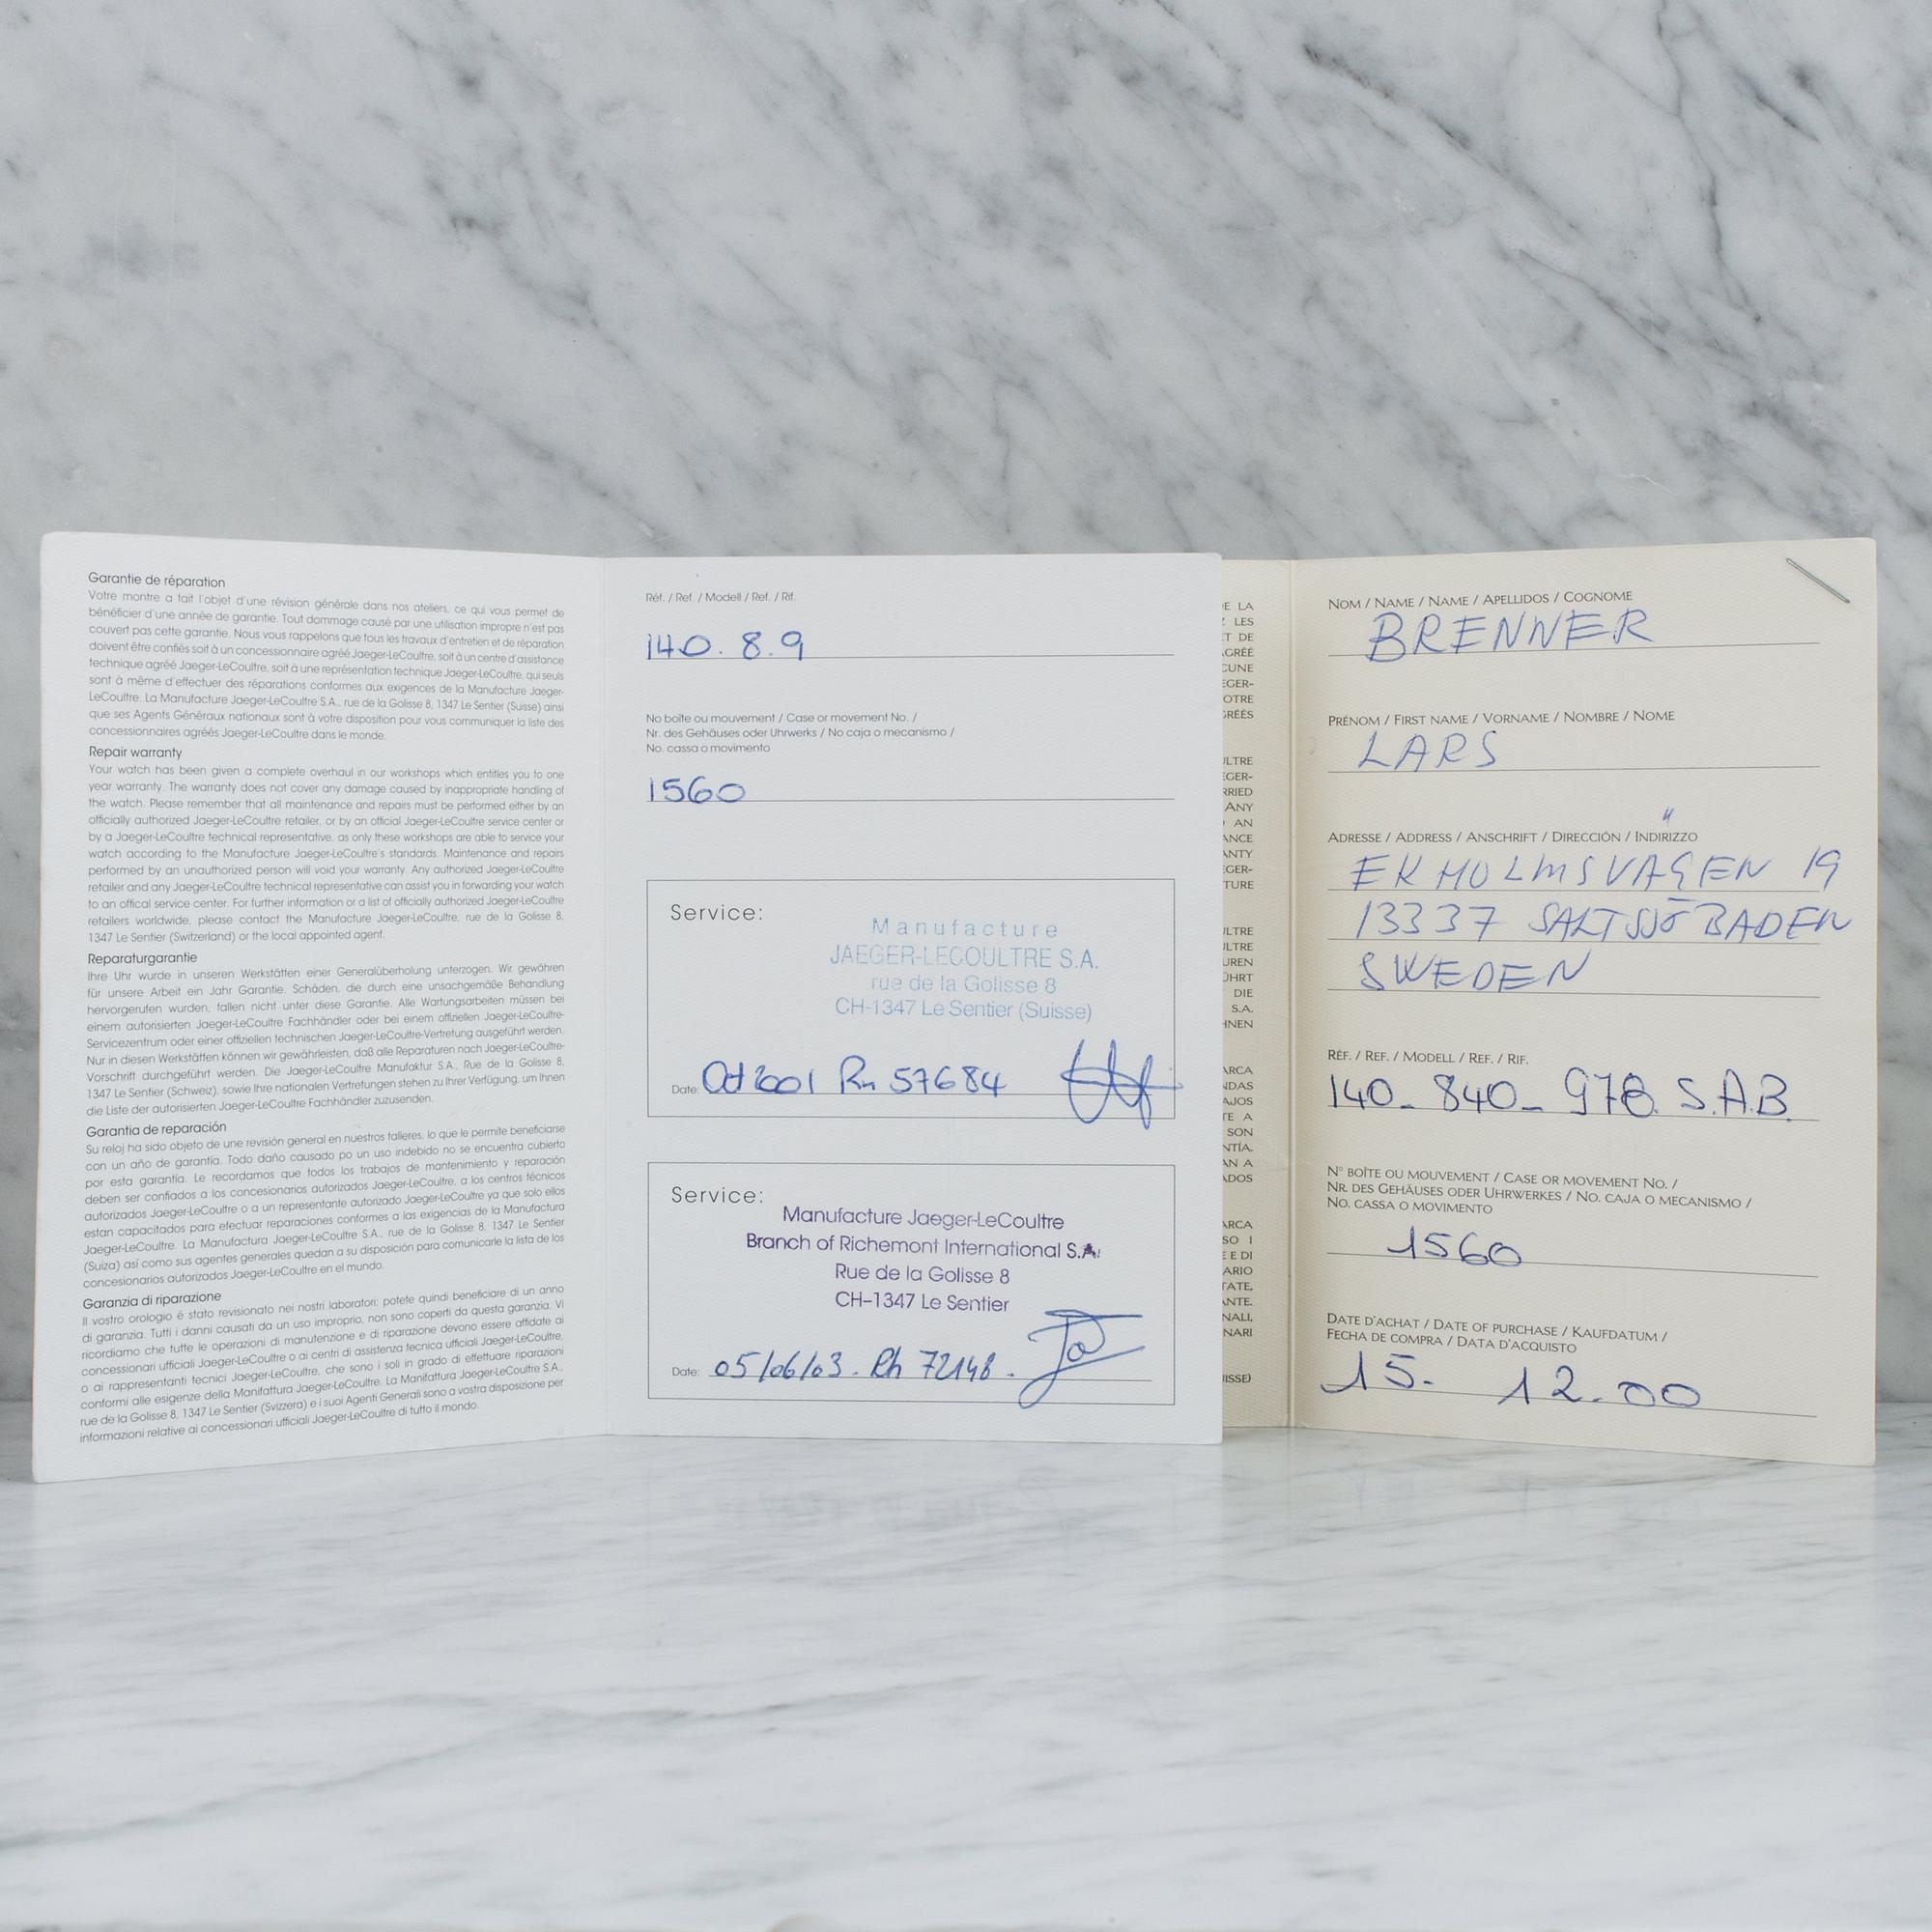 Garantie de réparation
Votre montre a fait l'objet d'une révision générale dans nos ateliers, ce qui vous permet de
bénéficier d'une année de garantie. Tout dommage causé par une utilisation impropre n'est pas
couvert pas cette garantie. Nous vous rappelons que tous les travaux d'entretien et de réparation
doivent être confiés soit à un concessionnaire agréé Jaeger-LeCoultre, soit à un centre d'assistance
technique agréé Jaeger-LeCoultre, soit à une représentation technique Jaeger-LeCoultre, qui seuls
sont à même d'effectuer des réparations conformes aux exigences de la Manufacture Jaeger-
LeCoultre. La Manufacture Jaeger-LeCoultre S.A., rue de la Golisse 8, 1347 Le Sentier (Suisse) ainsi
que ses Agents Généraux nationaux sont à votre disposition pour vous communiquer la liste des
concessionnaires agréés Jaeger-LeCoultre dans le monde.
Repair warranty
Your watch has been given a complete overhaul in our workshops which entitles you to one
year warranty. The warranty does not cover any damage caused by inappropriate handling of
the watch. Please remember that all maintenance and repairs must be performed either by an
officially authorized Jaeger-LeCoultre retailer, or by an official Jaeger-LeCoultre service center or
by a Jaeger-LeCoultre technical representative, as only these workshops are able to service your
watch according to the Manufacture Jaeger-LeCoultre's standards. Maintenance and repairs
performed by an unauthorized person will void your warranty. Any authorized Jaeger-LeCoultre
retailer and any Jaeger-LeCoultre technical representative can assist you in forwarding your watch
to an offical service center. For further information or a list of officially authorized Jaeger-LeCoultre
retailers worldwide, please contact the Manufacture Jaeger-LeCoultre, rue de la Golisse 8,
1347 Le Sentier (Switzerland) or the local appointed agent.
Reparaturgarantie
Ihre Uhr wurde in unseren Werkstätten einer Generalüberholung unterzogen. Wir gewähren
für unsere Arbeit ein Jahr Garantie. Schäden, die durch eine unsachgemäße Behandlung
hervorgerufen wurden, fallen nicht unter diese Garantie. Alle Wartungsarbeiten müssen bei
einem autorisierten Jaeger-LeCoultre Fachhändler oder bei einem offiziellen Jaeger-LeCoultre-
Servicezentrum oder einer offiziellen technischen Jaeger-LeCoultre-Vertretung ausgeführt werden.
Nur in diesen Werkstätten können wir gewährleisten, daß alle Reparaturen nach Jaeger-LeCoultre-
Vorschrift durchgeführt werden. Die Jaeger-LeCoultre Manufaktur S.A., Rue de la Golisse 8,
1347 Le Sentier (Schweiz), sowie Ihre nationalen Vertretungen stehen zu Ihrer Verfügung, um Ihnen
die Liste der autorisierten Jaeger-LeCoultre Fachhändler zuzusenden.
Garantia de reparación
Su reloj ha sido objeto de una revisión general en nuestros talleres, lo que le permite beneficiarse
con un año de garantía. Todo daño causado po un uso indebido no se encuentra cubierto
por esta garantía. Le recordamos que todos los trabajos de mantenimiento y reparación
deben ser confiados a los concesionarios autorizados Jaeger-LeCoultre, a los centros técnicos
autorizados Jaeger-LeCoultre o a un representante autorizado Jaeger-LeCoultre ya que solo ellos
estan capacitados para efectuar reparaciones conformes a las exigencias de la Manufactura
Jaeger-LeCoultre. La Manufactura Jaeger-LeCoultre S.A., rue de la Golisse 8, 1347 Le Sentier
(Suiza) así como sus agentes generales quedan a su disposición para comunicarle la lista de los
concesionarios autorizados Jaeger-LeCoultre en el mundo.
Garanzia di riparazione
Il vostro orologio é stato revisionato nei nostri laboratori; potete quindi beneficiare di un anno
di garanzia. Tutti i danni causati da un uso improprio, non sono coperti da questa garanzia. Vi
ricordiamo che tutte le operazioni di manutenzione e di riparazione devono essere affidate ai
concessionari ufficiali Jaeger-LeCoultre o ai centri di assistenza tecnica ufficiali Jaeger-LeCoultre,
o ai rappresentanti tecnici Jaeger-LeCoultre, che sono i soli in grado di effettuare riparazioni
conformi alle esigenze della Manifattura Jaeger-LeCoultre. La Manifattura Jaeger-LeCoultre S.A.,
rue de la Golisse 8, 1347 Le Sentier (Svizzera) e i suoi Agenti Generali sono a vostra disposizione per
informazioni relative ai concessionari ufficiali Jaeger-LeCoultre di tutto il mondo.
Réf. / Ref. / Modell / Ref. / Rif.
140. 8. 9
No boîte ou mouvement / Case or movement No. /
Nr. des Gehäuses oder Uhrwerks / No caja o mecanismo /
No. cassa o movimento
1560
Service:
Manufacture
JAEGER-LECOULTRE S.A.
rue de la Golisse 8
CH-1347 Le Sentier (Suisse)
Date: Oct 2001 Rh 57684
Service:
Manufacture Jaeger-LeCoultre
Branch of Richemont International S.A.
Rue de la Golisse 8
CH-1347 Le Sentier
Date: 05/06/03. Rh 72148.
E LA
LES
T DE
GRÉÉ
CUNE
EGER-
OTRE
GRÉÉS
ULTRE
EGER-
RRIED
ANY
AN
ANCE
ANTY
EGER-
TURE
ULTRE
ULTRE
UREN
ÜHRT
DIE
S.A.
HNEN
ARCA
NDAS
AJOS
TE A
SON
NTÍA.
AN A
ADOS
ARCA
SO I
E E DI
ARIO
TATE,
ANTE.
NALI,
NARI
ISSE)
NOM / NAME / NAME / APELLIDOS / COGNOME
BRENNER
PRÉNOM / FIRST NAME / VORNAME / NOMBRE / NOME
LARS
ADRESSE / ADDRESS / ANSCHRIFT / DIRECCIÓN / INDIRIZZO
EKHOLMSVÄGEN 19
13337 SALTSJÖBADEN
SWEDEN
RÉF. / REF. / MODELL / REF. / RIF.
140_ 840_ 978. S.A.B.
N° BOÎTE OU MOUVEMENT / CASE OR MOVEMENT NO. /
NR. DES GEHÄUSES ODER UHRWERKES / NO. CAJA O MECANISMO /
NO. CASSA O MOVIMENTO
1560
DATE D'ACHAT / DATE OF PURCHASE / KAUFDATUM /
FECHA DE COMPRA / DATA D'ACQUISTO
15. 12.00